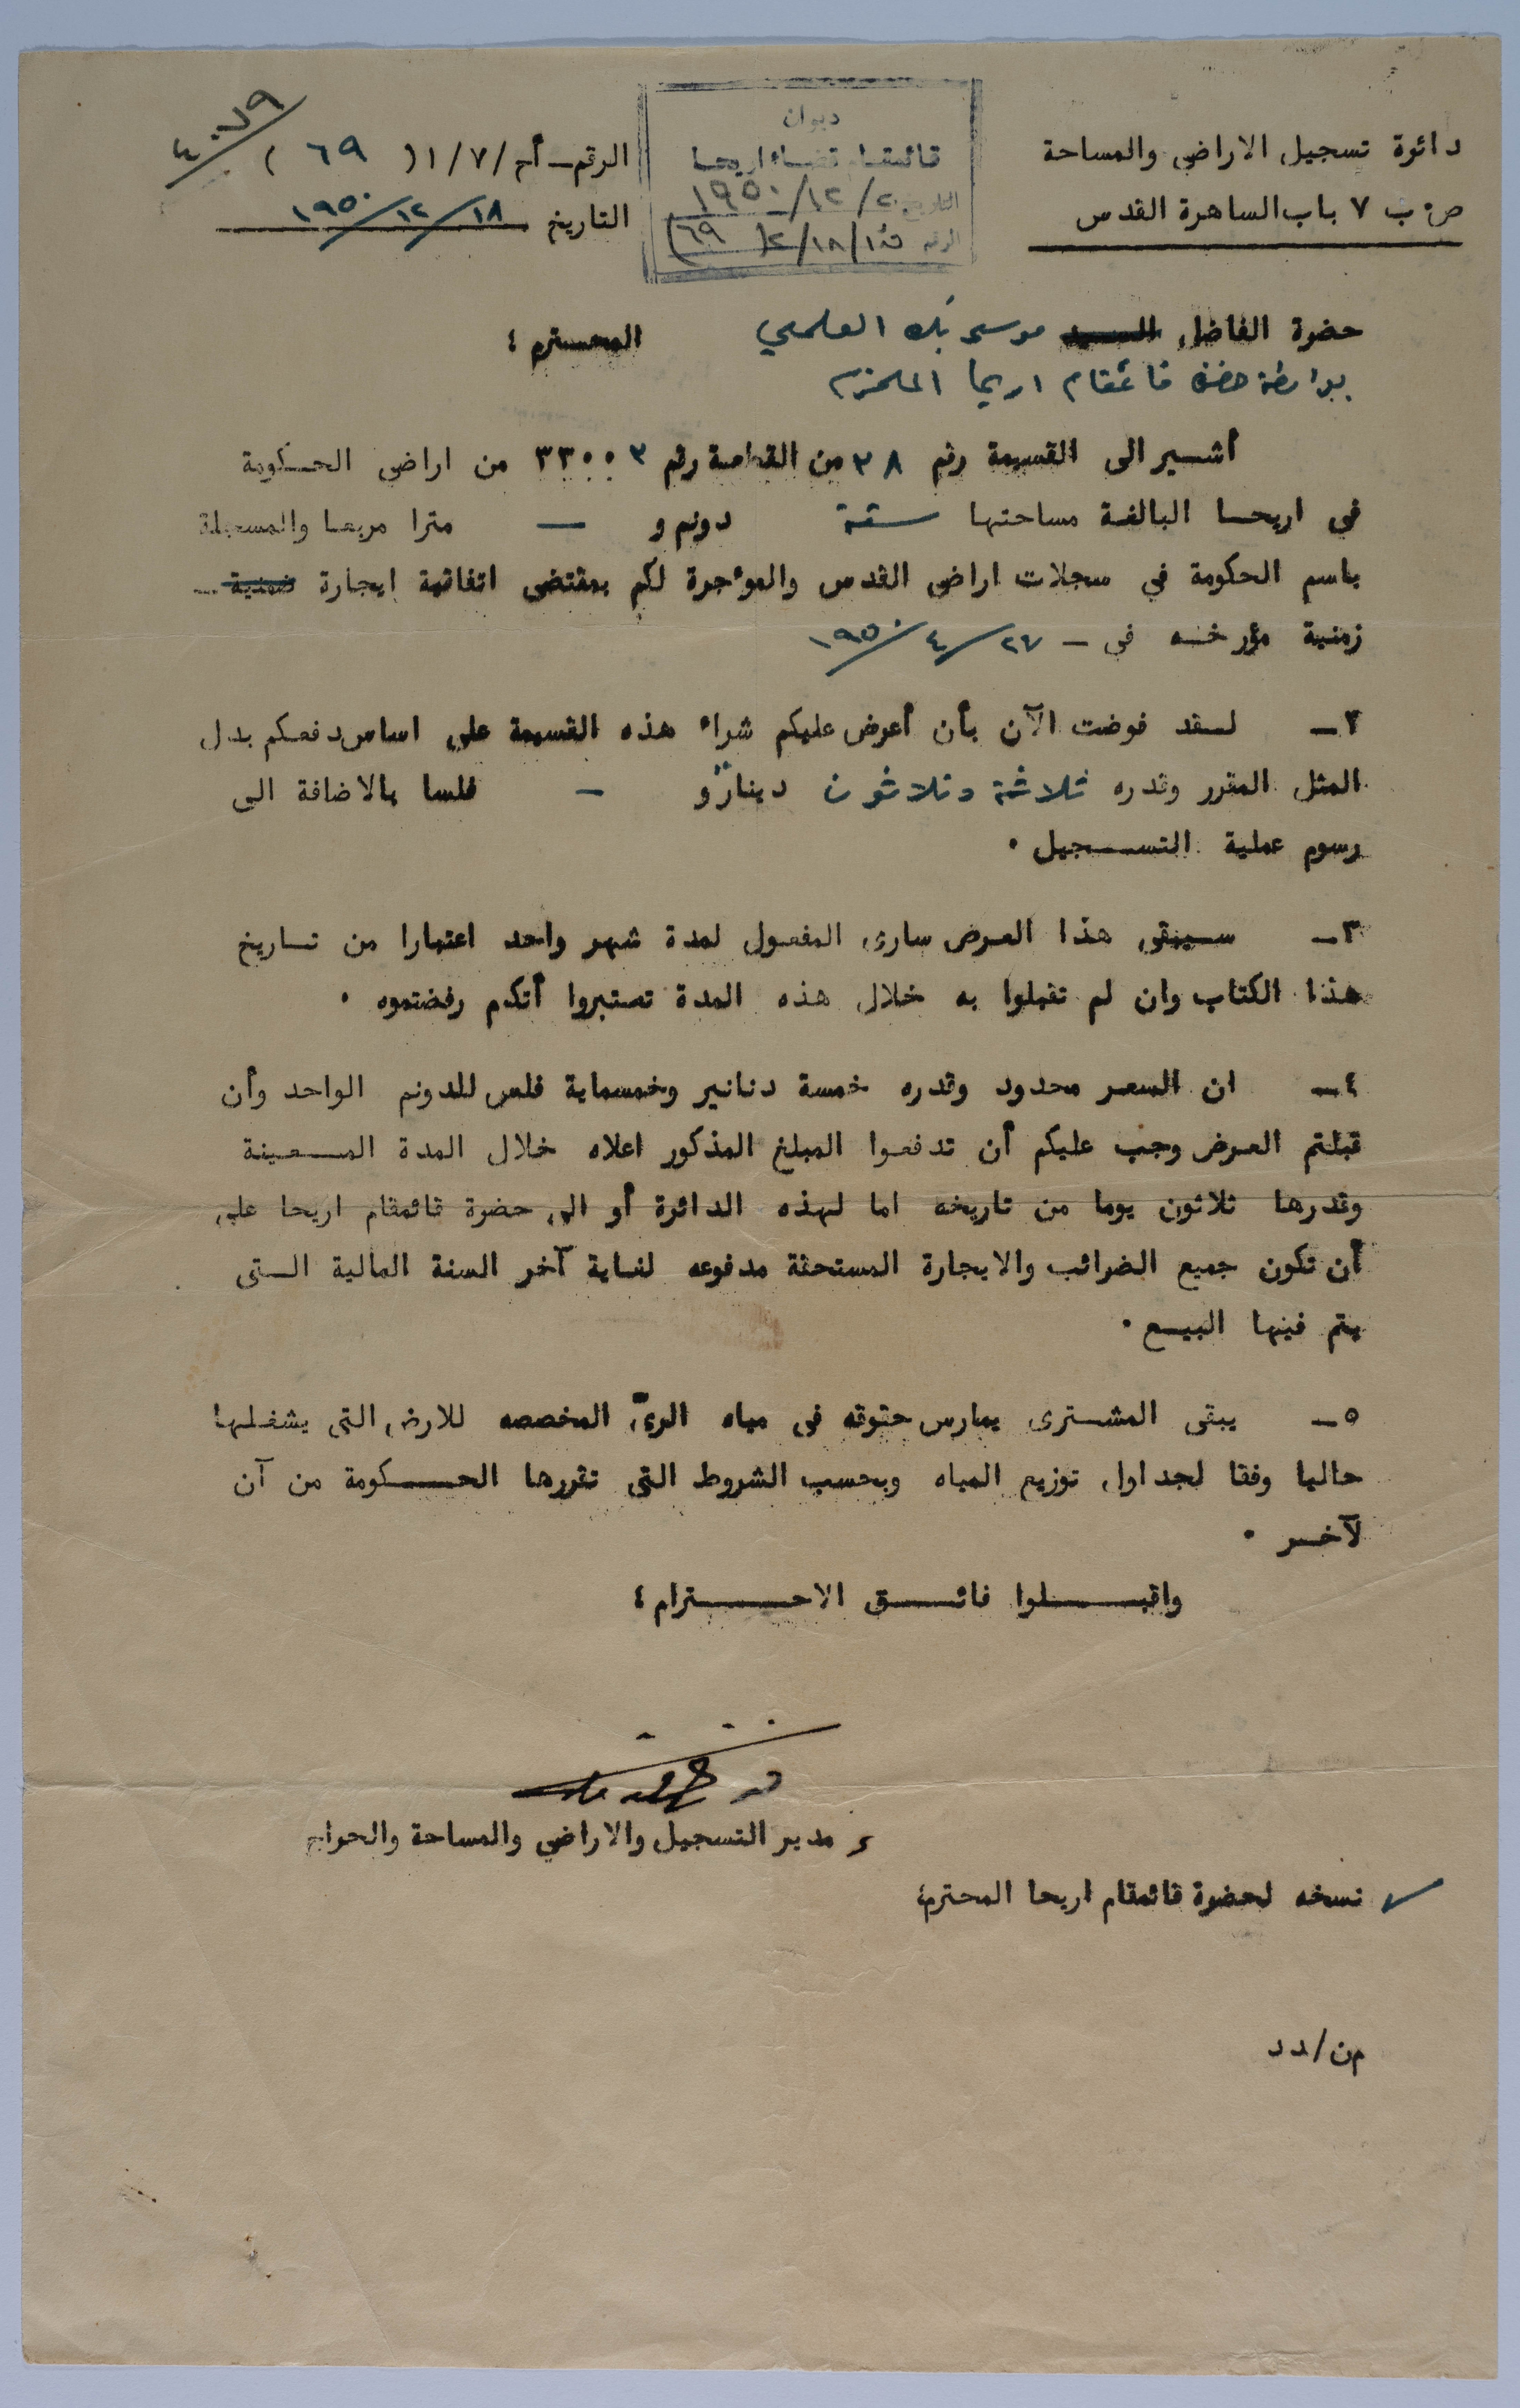 دائرة تسجيل الاراضي والمساحة
ص٠ب ٧ باب الساهرة القدس
ديوان
قائمقام قضاء اريحا
التاريخ ٢٠/١٢/١٩٥٠
الرقم ق/١٨/١٠/٢ (٦٩)
الرقم ـ أم/٧/١( ٦٩ )
التاريخ ١٨/١٢/١٩٥٠
حضرة الفاضل السيد موسى بك العلمي المحترم ؛
بواسطة حضرة قائمقام اريحا المحترم
أشير الى القسيمة رقم ٣٨ من القطعة رقم ٣٣٠٠٣ من اراضي الحكومة
في اريحا البالغة مساحتها ستة دونم و — مترا مربعا والمسجلة
باسم الحكومة في سجلات اراضي القدس والمؤجرة لكم بمقتضى اتفاقية ايجارة ضمنية ـ
زمنية مؤرخه في ـ ٢٧/٤/١٩٥٠
٢ـ لقد فوضت الآن بأن أعرض عليكم شراء هذه القسيمة على اساس دفعكم بدل
المثل المقرر وقدره ثلاثة وثلاثون دينار و — فلسا بالاضافة الى
رسوم عملية التسجيل ٠
٣ـ سيبقى هذا العرض ساري المفعول لمدة شهر واحد اعتبارا من تاريخ
هذا الكتاب وان لم تقبلوا به خلال هذه المدة تعتبروا أنكم رفضتموه ٠
٤ـ ان السعر محدود وقدره خمسة دنانير وخمسماية فلس للدونم الواحد وأن
قبلتم العرض وجب عليكم أن تدفعوا المبلغ المذكور اعلاه خلال المدة المعينة
وقدرها ثلاثون يوما من تاريخه اما لهذه الدائرة أو الى حضرة قائمقام اريحا على
أن تكون جميع الضرائب والايجارة المستحقة مدفوعه لغاية آخر السنة المالية التي
يتم فيها البيع ٠
٥ـ يبقى المشتري يمارس حقوقه في مياه الريّ المخصصه للارض التي يشغلها
حاليا وفقا لجداول توزيع المياه وبحسب الشروط التي تقررها الحكومة من آن
لآخر ٠
واقبلوا فائق الاحترام ؛
مدير التسجيل والاراضي والمساحة والحراج
نسخه لحضرة قائمقام اريحا المحترم؛
م ن/د د